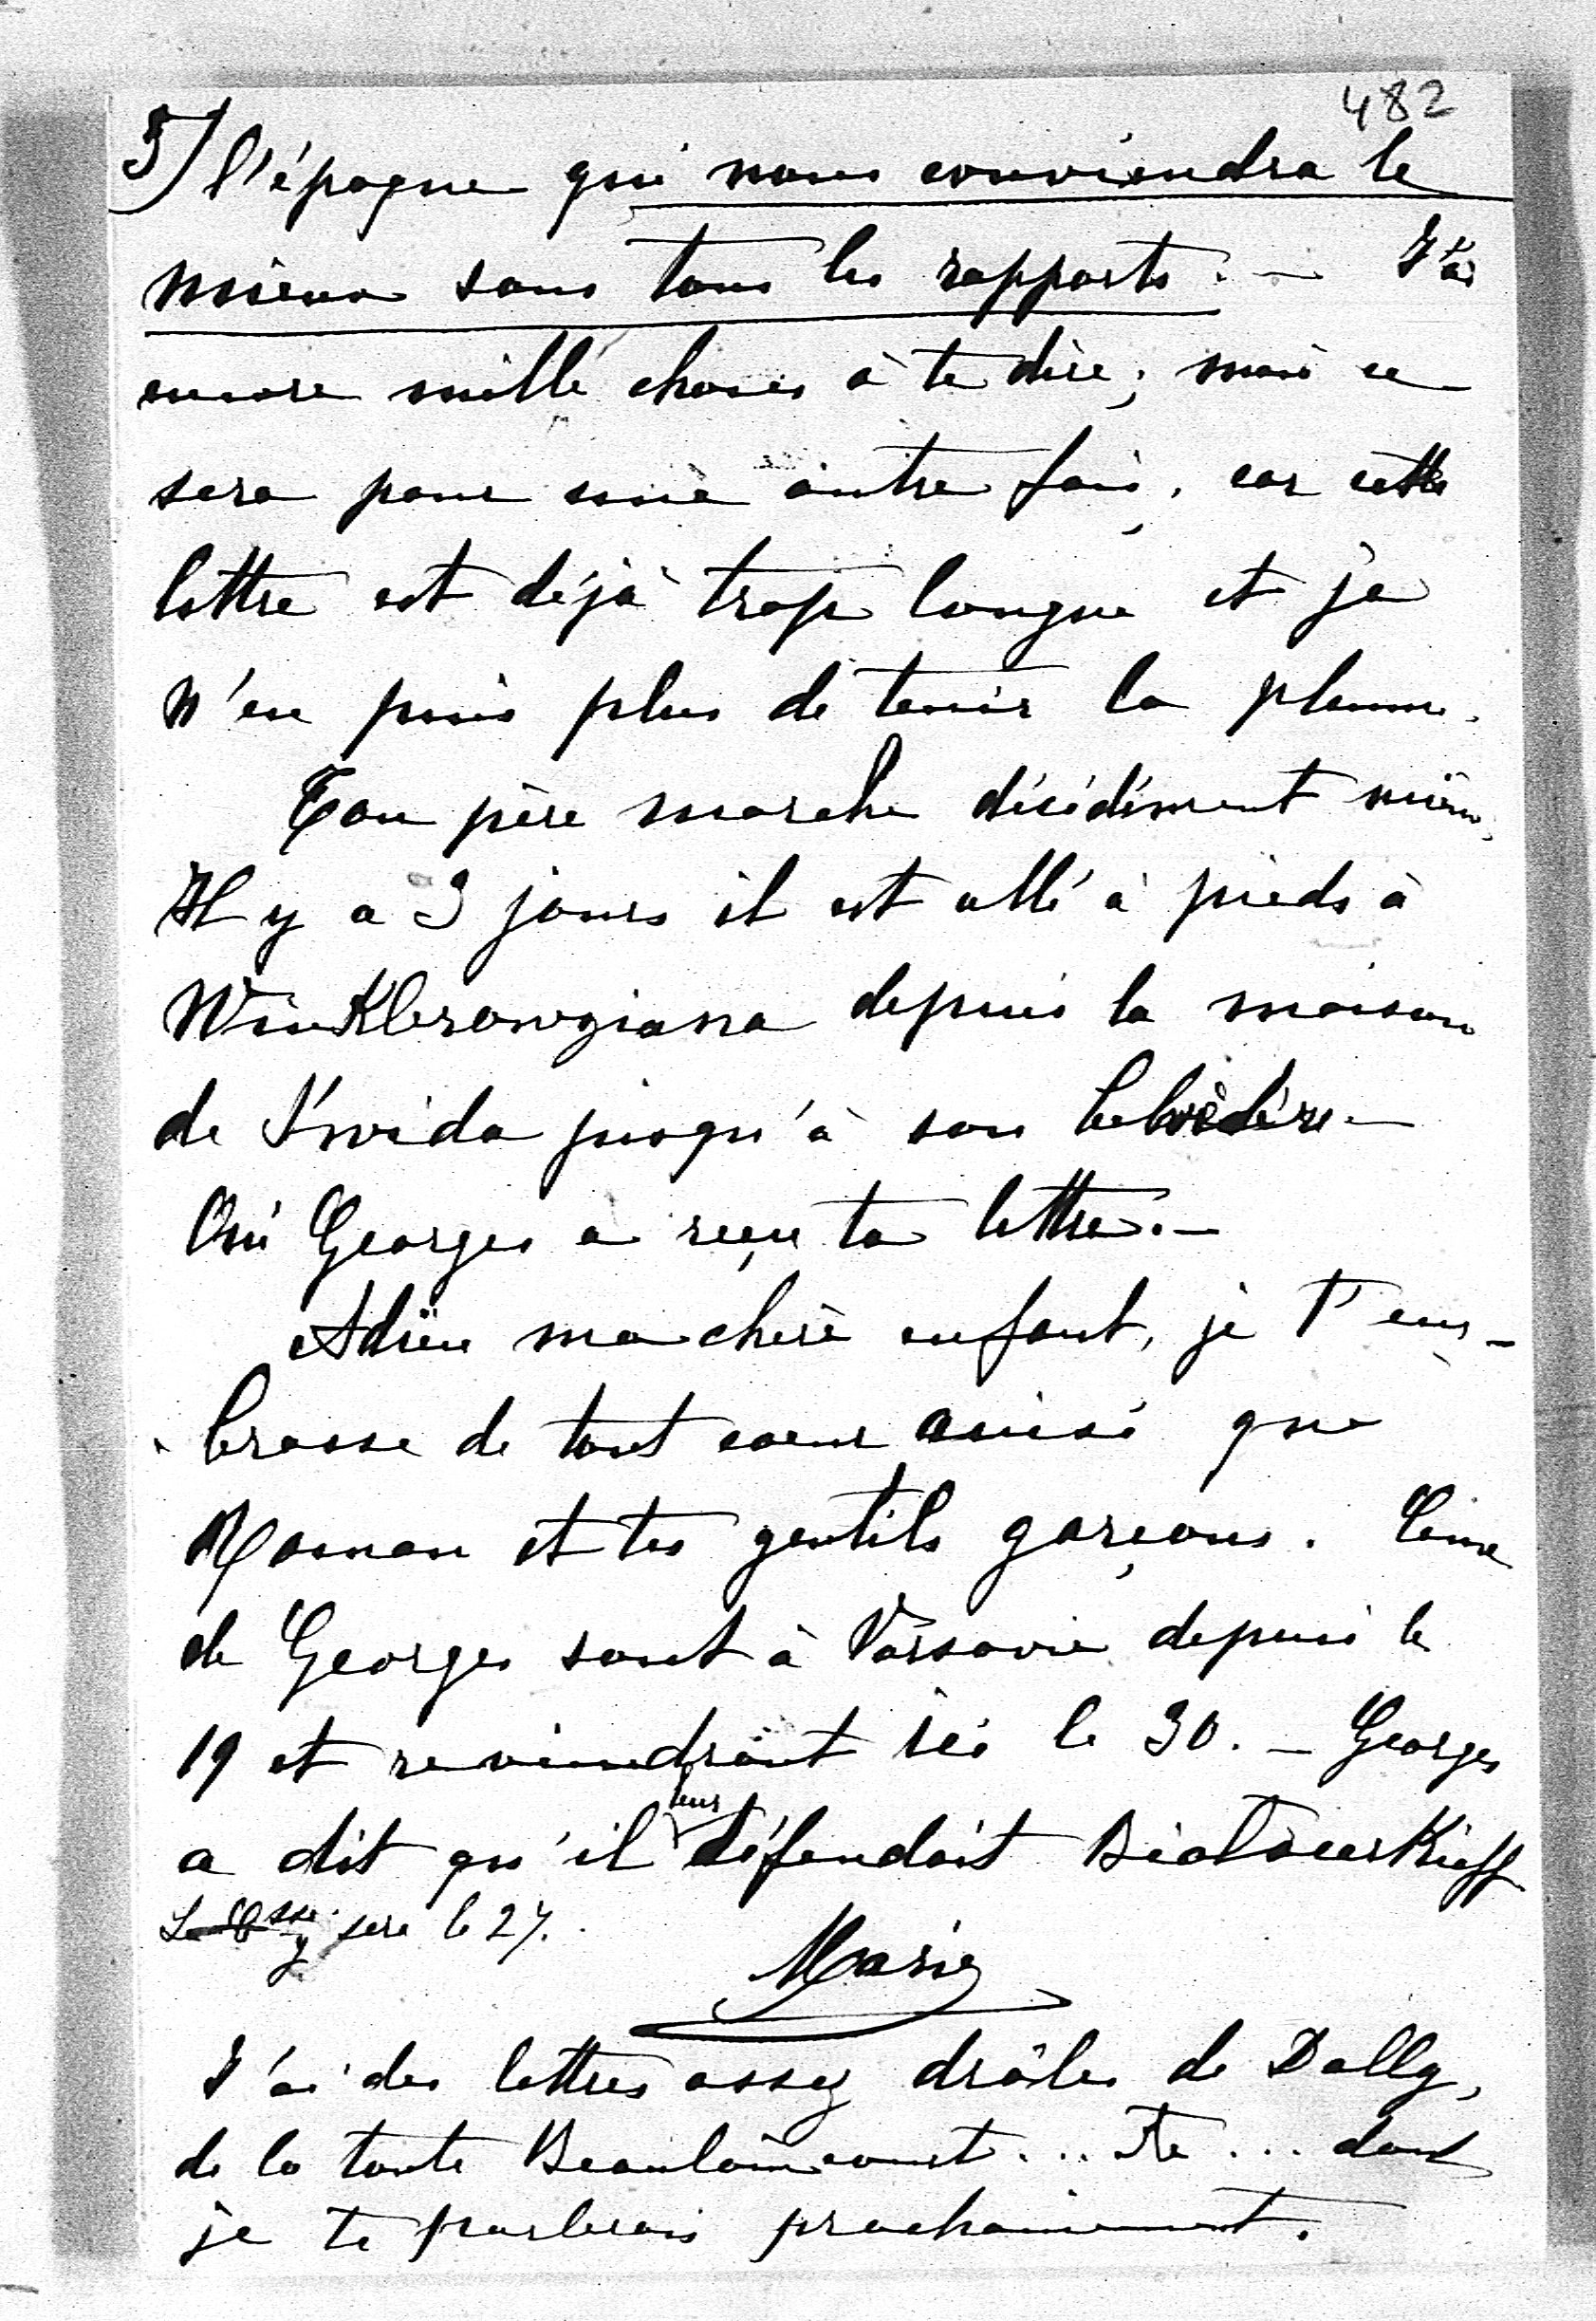 482
5/ l'époque qui nous conviendra le
mieux sous tous les rapports. – J'ai
encore mille choses à te dire; mais ce
sera pour une autre fois, car cette
lettre est déjà trop longue et je
n'en puis plus de tenir la plume.
Ton père marche décidément mieux.
Il y a 3 jours il est allé à pieds à
Winklerowziana depuis la maison
de Świda jusqu'à son belvédère –
Oui Georges a reçu ta lettre. –
Adieu ma chère enfant, je t'em-
brasse de tout coeur ainsi que
Roman et tes gentils garçons.
de Georges sont à Varsovie depuis le
19 et reviendront ici le 30. – Georges
a dit qu'il leur défendait
y sera le 27.
Marie
J'ai des lettres assez drôles de Dolly,
de la tante Beaulaincourt... etc... dont
je te parlerais prochainement.